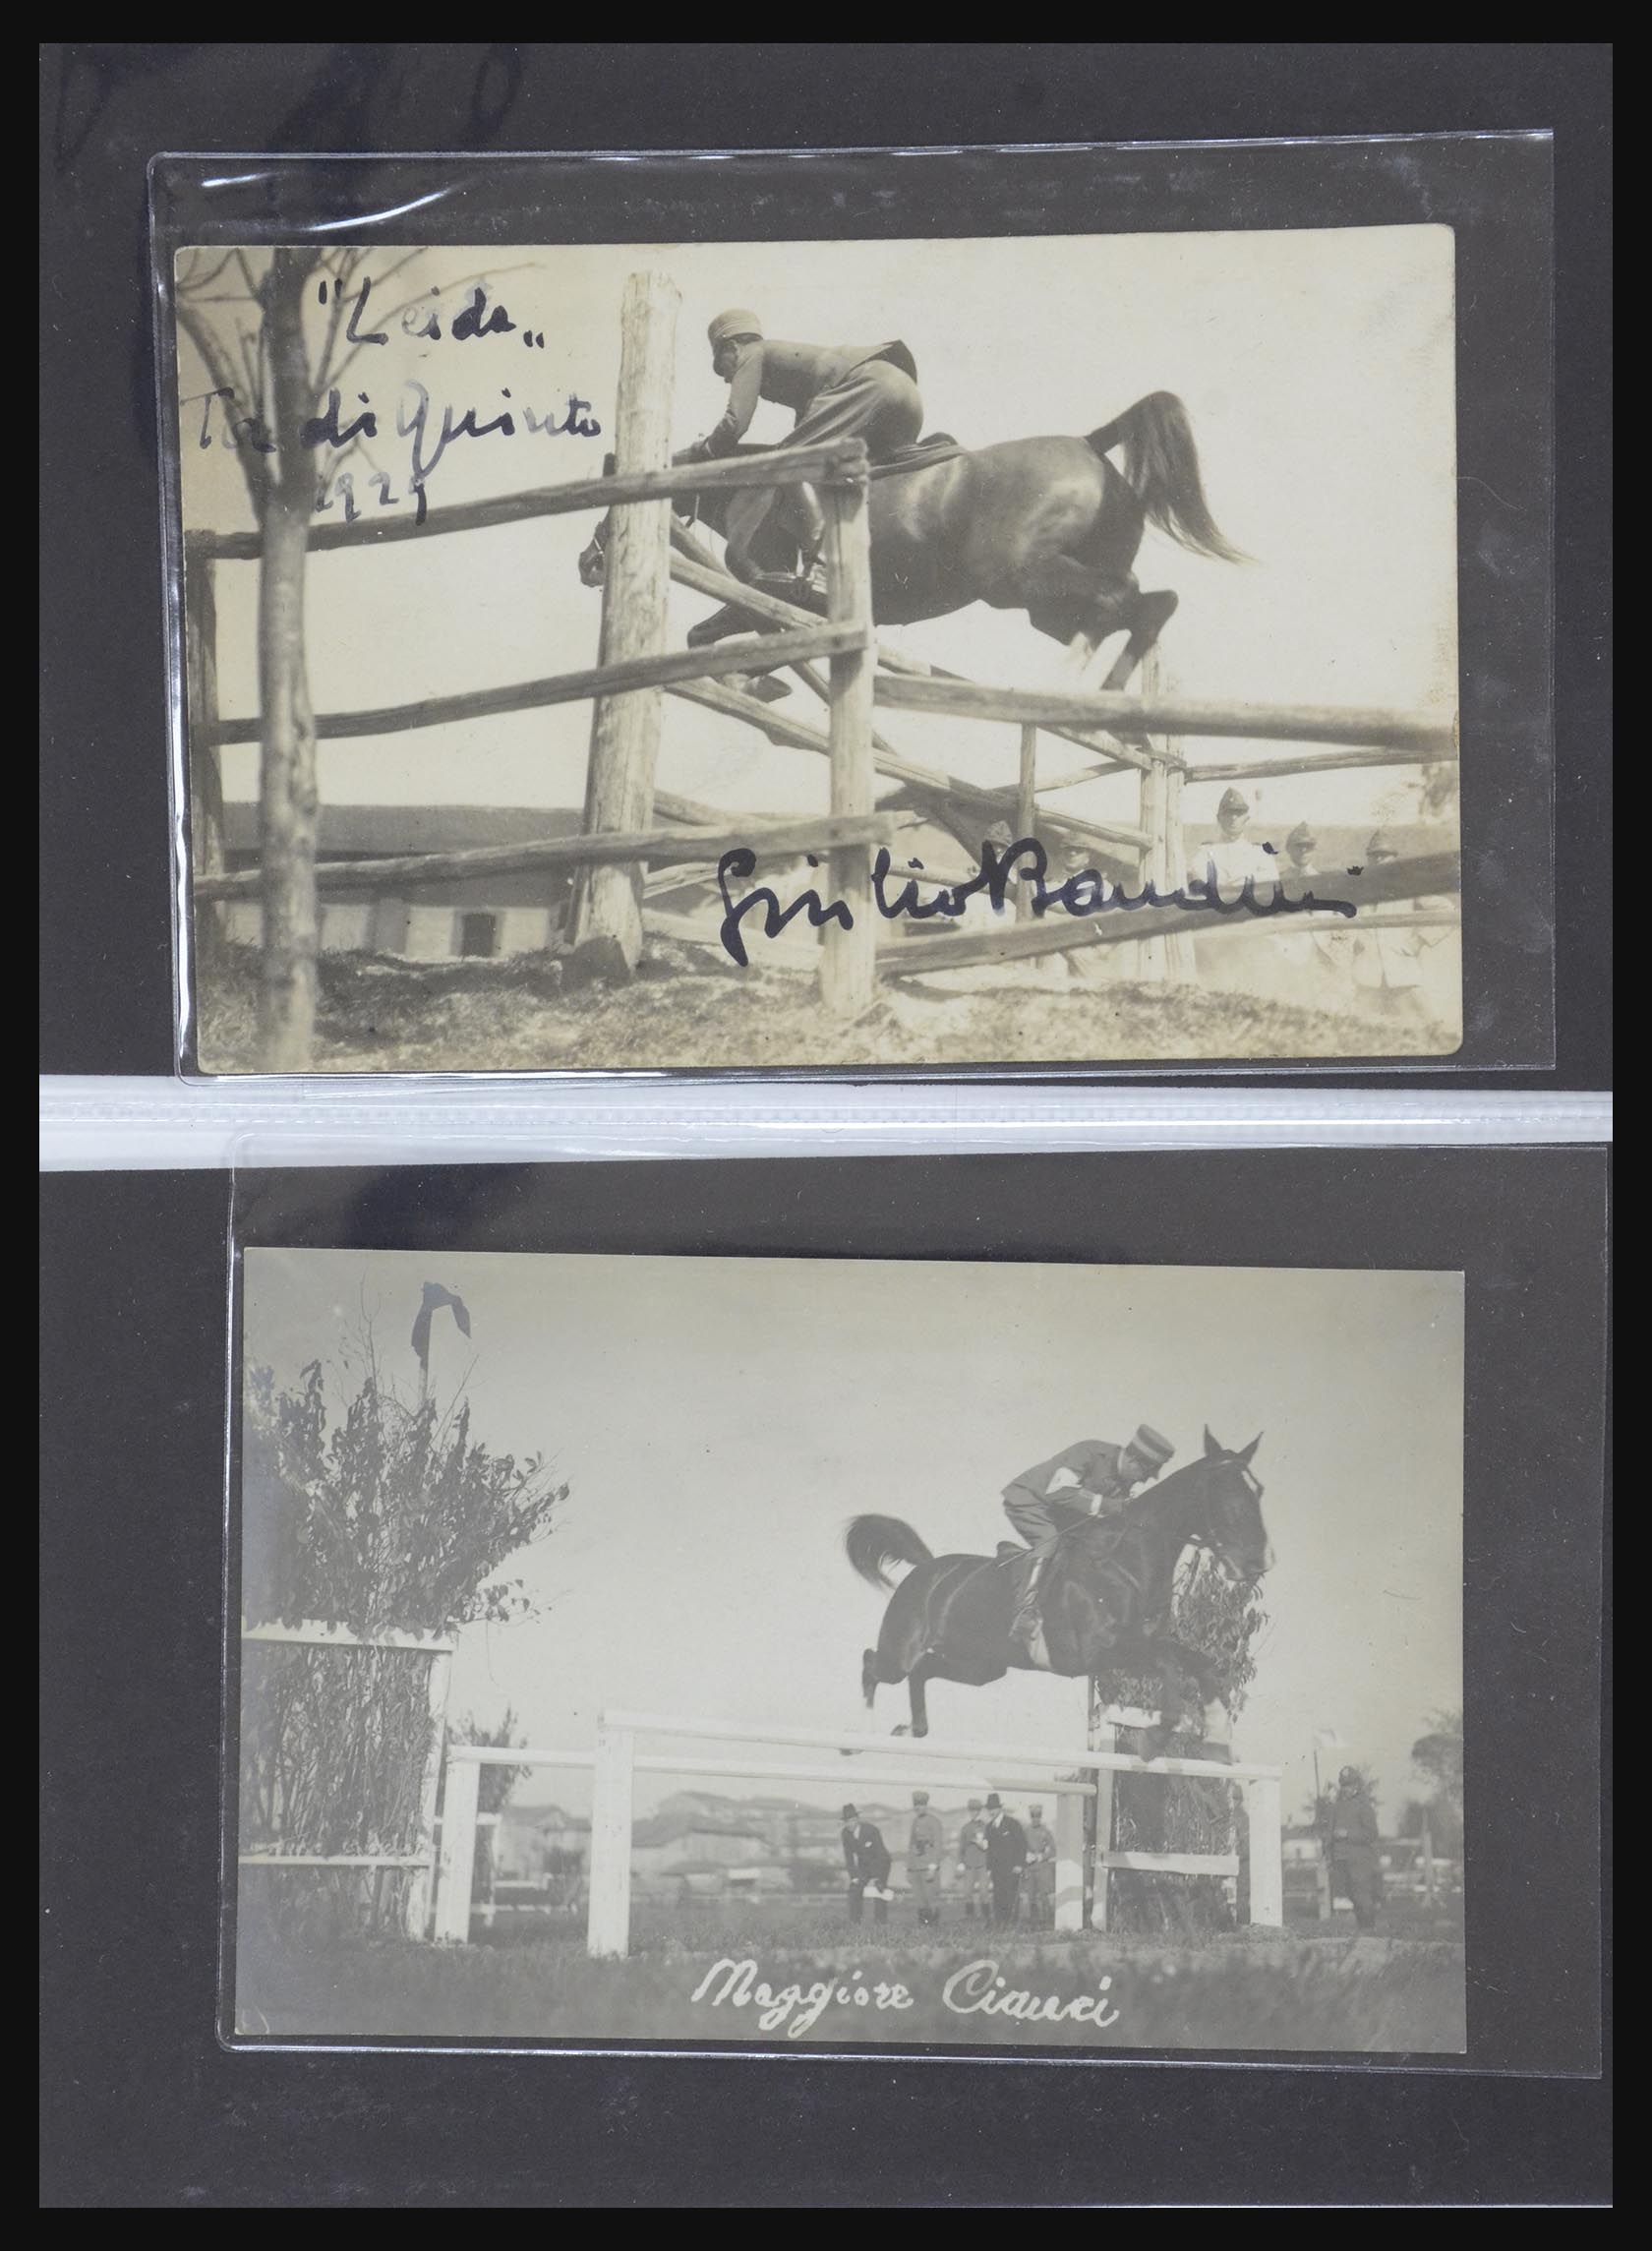 "Leida„
Tor di Quinto
1929
Giulio Bandini
Maggiore Ciauri